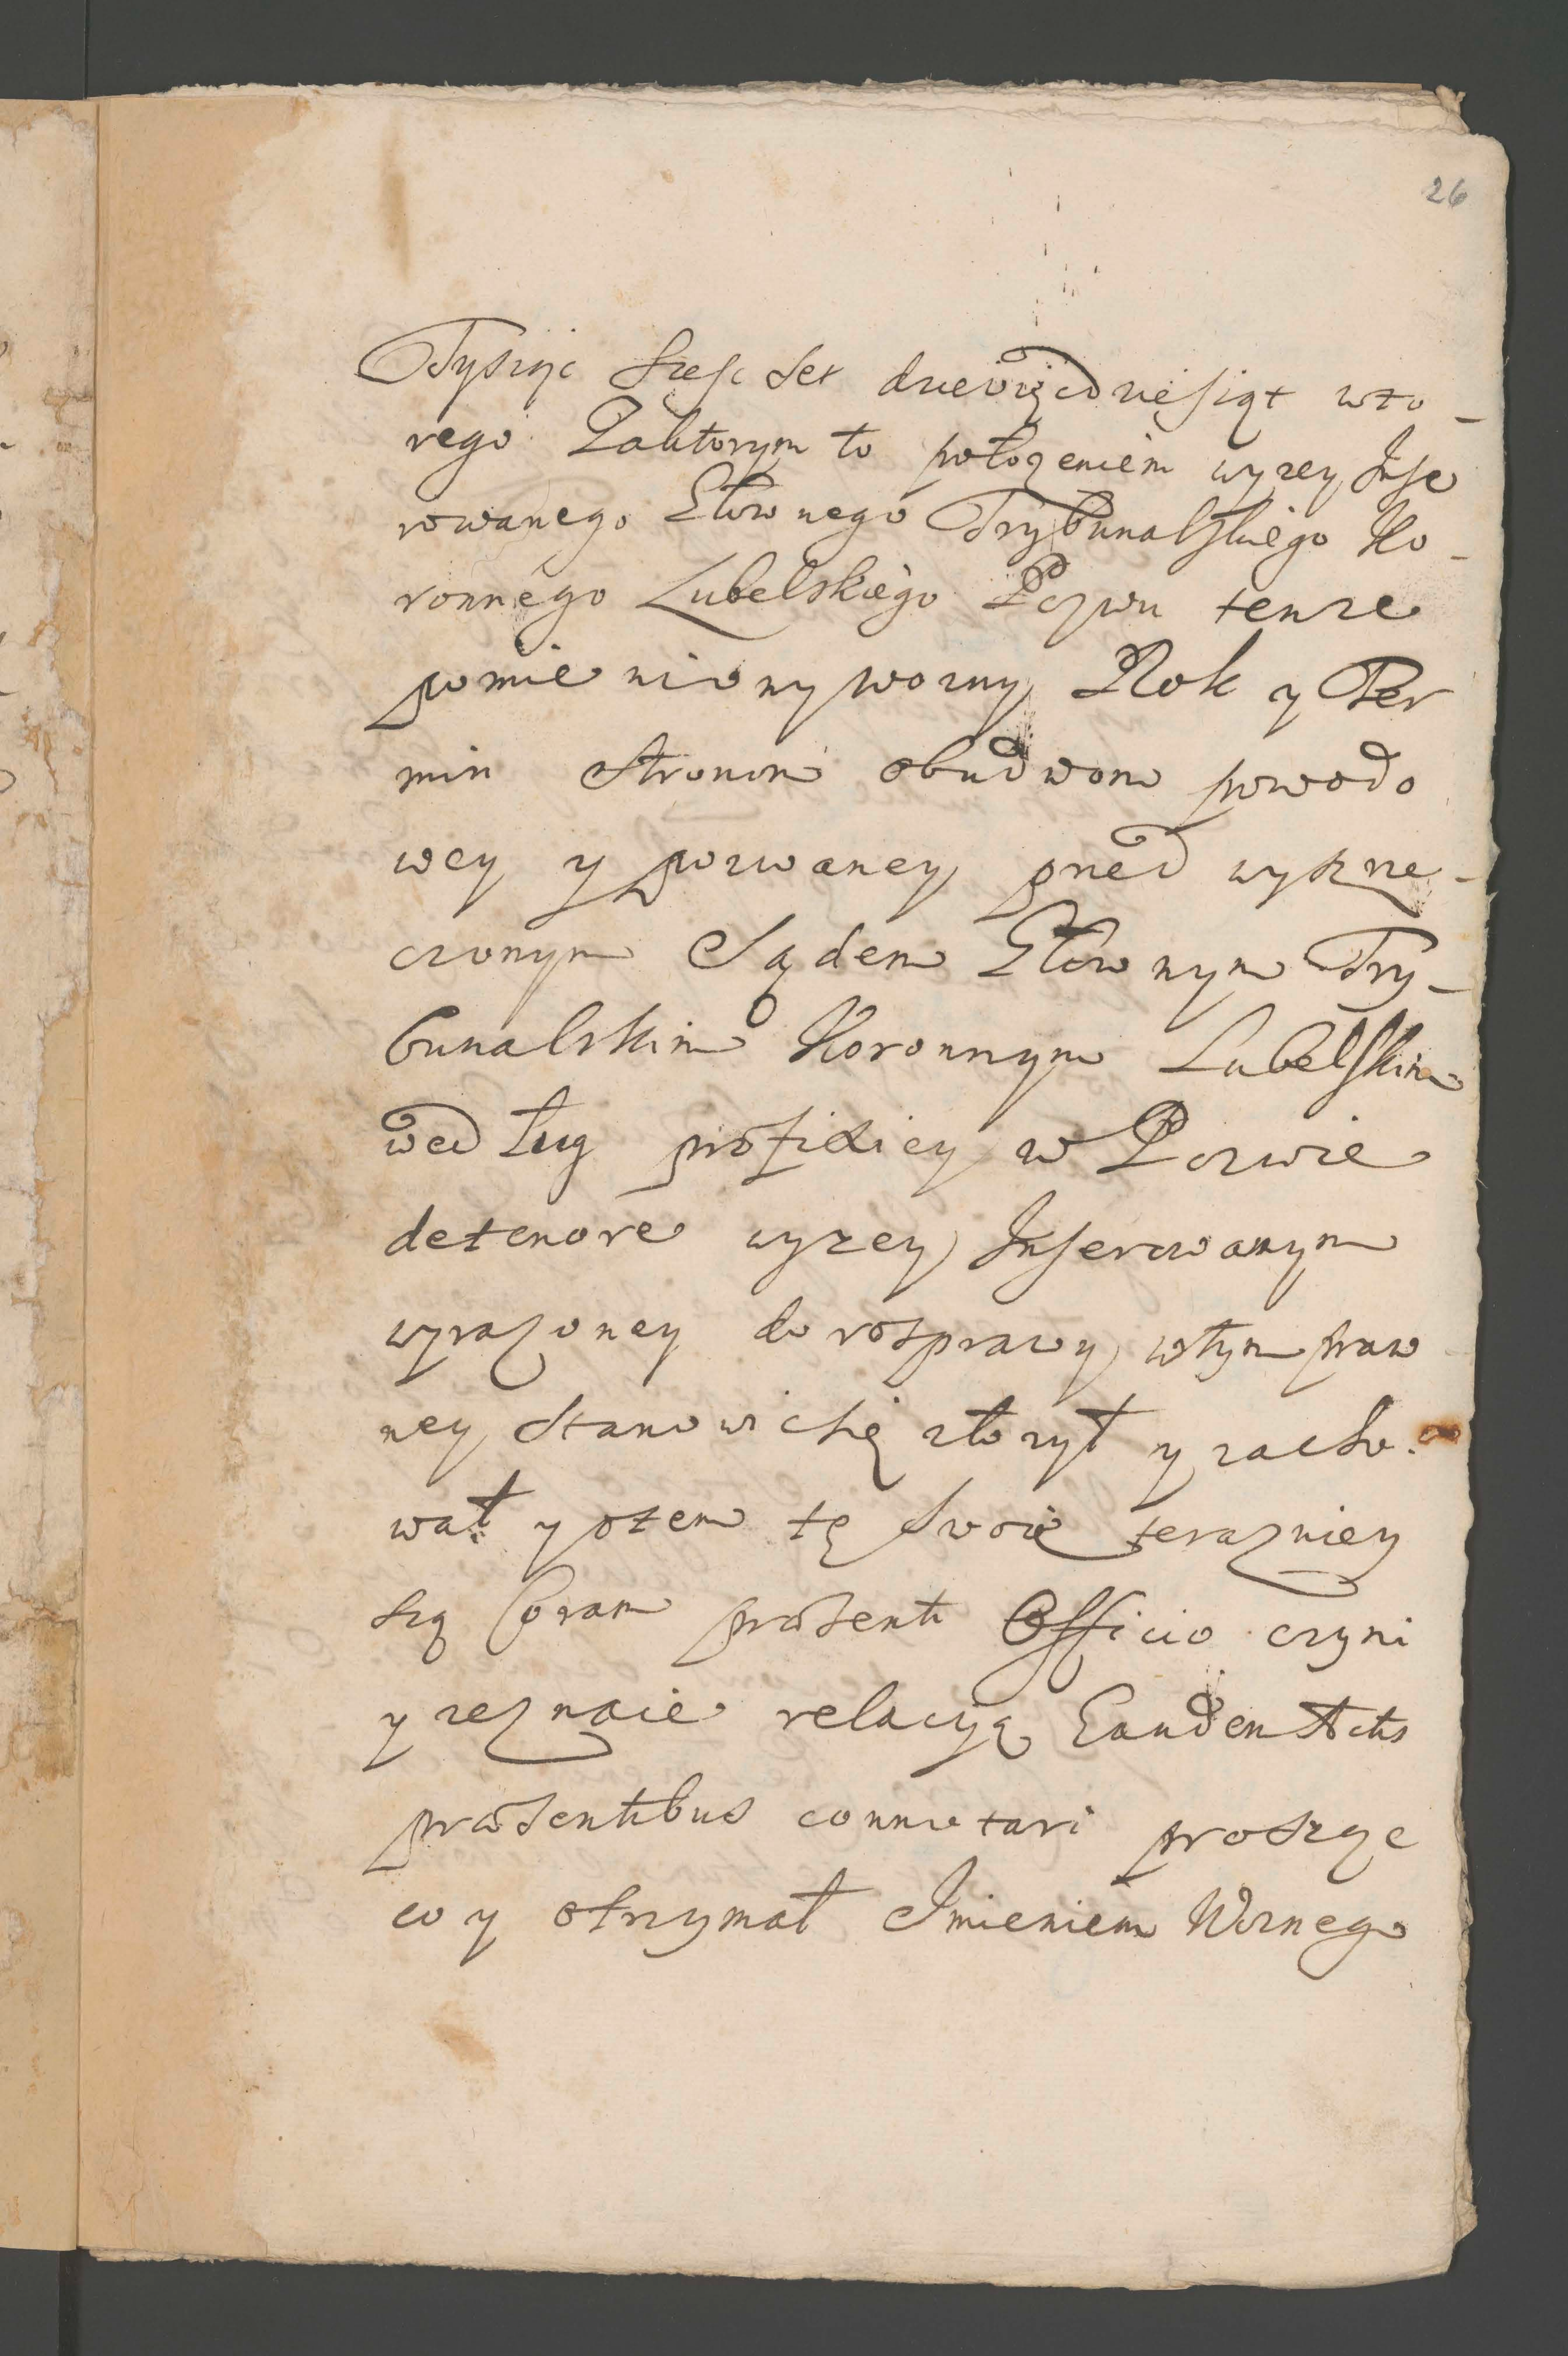 26
Tysiąc szesc set dziewięcdziesiąt wto-
rego Zaktorym to położeniem wyzey Inse
rowanego Głownego Trybunalskiego Ko-
ronnego Lubelskiego Pozwu tenze
pomieniony wozny Rok y Ter
min stronom obudwom powodo
wey y pozwaney przed wyszrze-
czonym Sądem Głownym Try-
bunalskim Koronnym Lubelskim
według profixiey w Pozwie
de tenore wyzey Inserowanym
wyrazoney do rosprawy wtym praw
ney stanowic się złozył y zacho-
wał y otem tę swoię terazniey
szą Coram præsenti Officio czyni
y zeznaie relacyą Eandem Actis
præsentibus connotari prosząc
co y otrzymał Imieniem Woznego